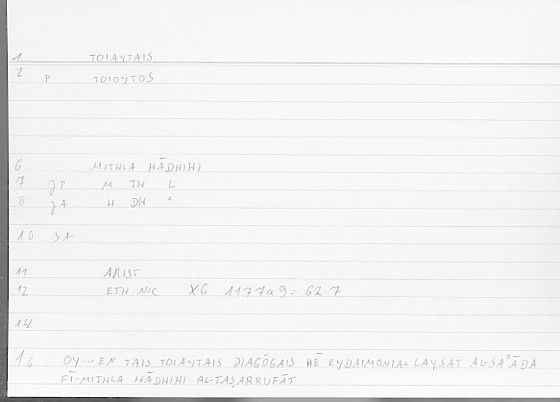 1 TOIAYTAIS
2 P TOIOYTOS
6 MITHLA HĀDHIHI
7 JP M TH L
8 JA H DH °
10 SA
11 ARIST
12 ETH NIC X6 1177a9 = 62.7
14
16 OY... EN TAIS TOIAYTAIS DIAGŌGAIS HĒ EYDAIMONIA LAYSAT AL-SAʿĀDA
FĪ-MITHLA HĀDHIHI AL-TAṢARRUFĀT